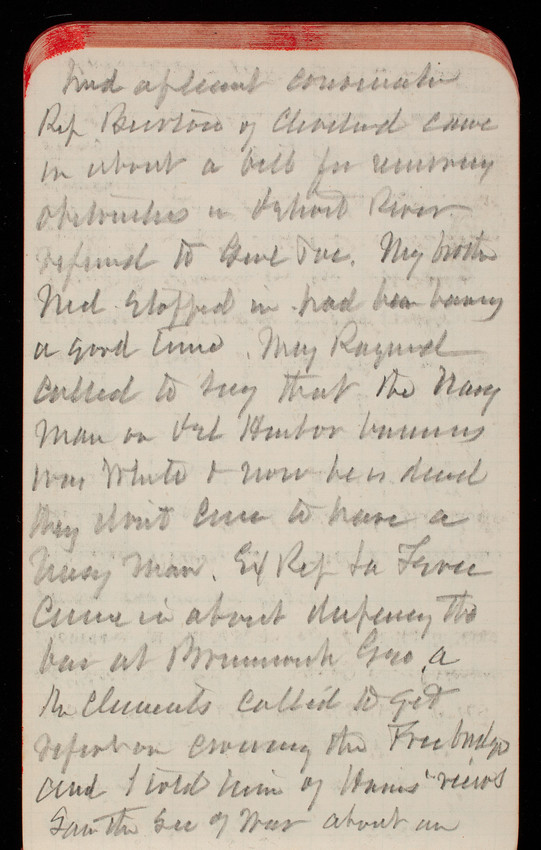 had a pleasant conversation
Rep Burton of Cleveland came
in about a bill for removing
obstructions in Detroit River
referred to Genl Poe. My brother
Ned stopped in had been having
a good time. Maj Raymond
called to say that the Navy
man on Del Harbor
was White & now he is dead
they don't care to have a
Navy man. Ex Rep Le Fevre
came in about deepening the
bar at Brunswick Geo, a
Mr Clements called to get
report on crossing the Free bridge
and I told him of Hains' views
Saw the Sec of War about an